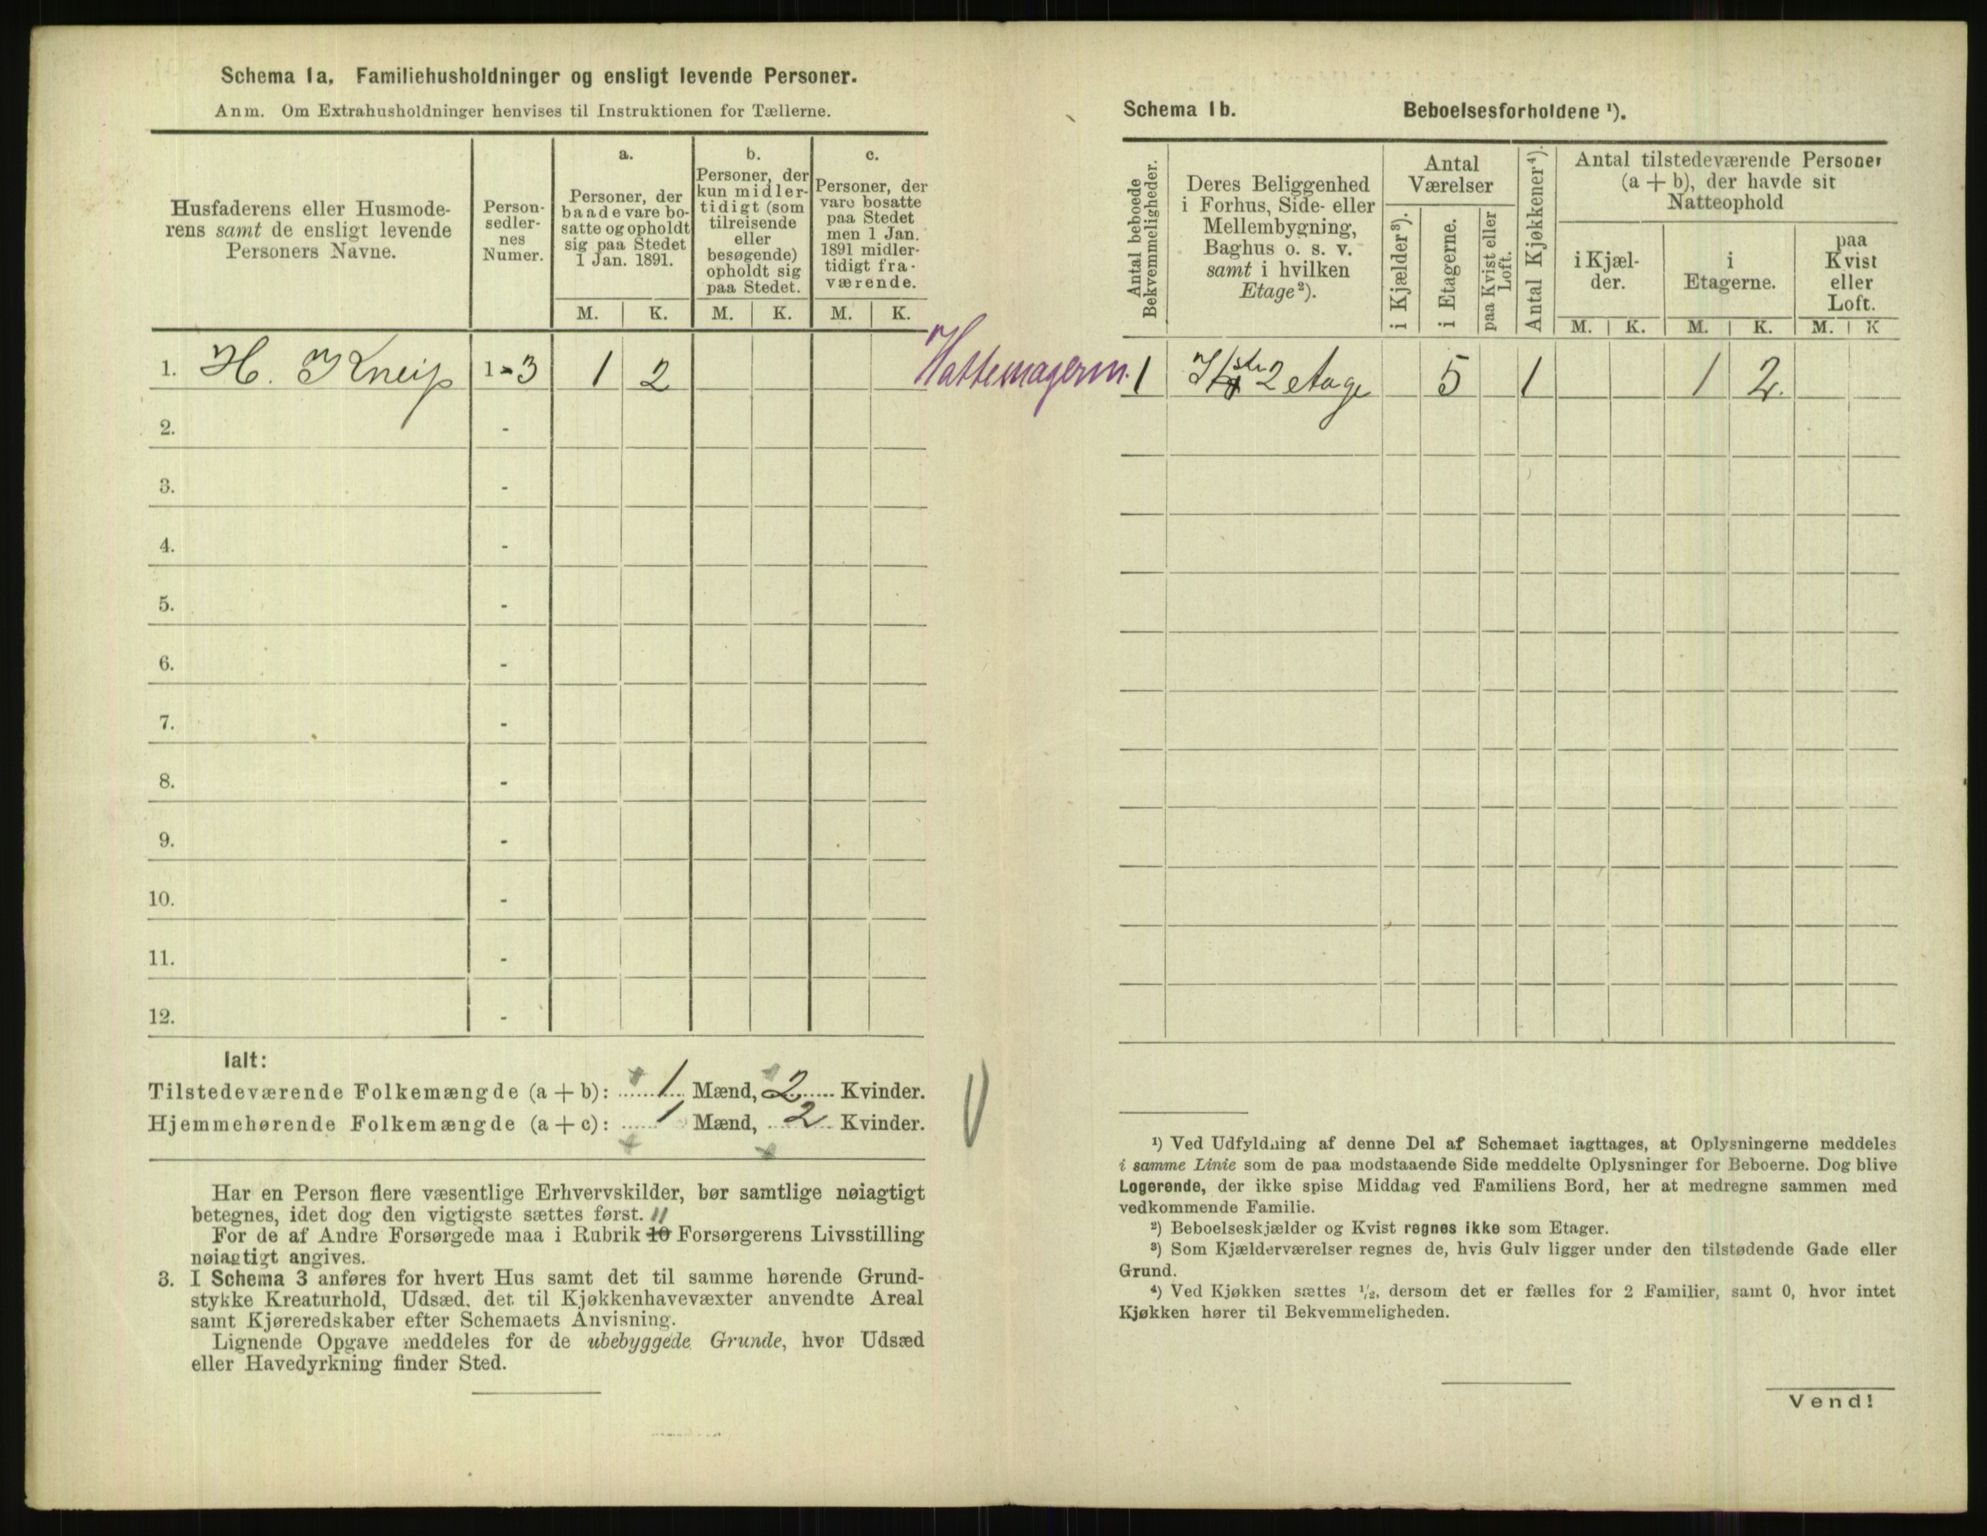 Schema 1a. Familiehusholdninger og ensligt levende Personer.
Anm. Om Extrahusholdninger henvises til Instruktionen for Tællerne.
Husfaderens eller Husmode-
rens samt de ensligt levende
Personers Navne.
Person-
sedler-
nes
Numer.
a.
Personer, der
baade vare bo-
satte og opholdt
sig paa Stedet
1 Jan. 1891.
b.
Personer, der
kun midler-
tidigt (som
tilreisende
eller
besøgende)
opholdt sig
paa Stedet.
c.
Personer, der
vare bosatte
paa Stedet
men 1 Jan.
1891 midler-
tidigt fra-
værende.
M. K. M. K. M. K.
1. H. J Kneip 1-3 1 2
Hattemagerm.
2. -
3. -
4. -
5. -
6. -
7. -
8. -
9. -
10. -
11. -
12. -
Ialt:
Tilstedeværende Folkemængde (a + b): 1 Mænd, 2 Kvinder.
Hjemmehørende Folkemængde (a + c): 1 Mænd, 2 Kvinder.
Har en Person flere væsentlige Erhvervskilder, bør samtlige nøiagtigt
betegnes, idet dog den vigtigste sættes først.
11
For de af Andre Forsørgede maa i Rubrik 10 Forsørgerens Livsstilling
nøiagtigt angives.
3. I Schema 3 anføres for hvert Hus samt det til samme hørende Grund-
stykke Kreaturhold, Udsæd, det til Kjøkkenhavevæxter anvendte Areal
samt Kjøreredskaber efter Schemaets Anvisning.
Lignende Opgave meddeles for de ubebyggede Grunde, hvor Udsæd
eller Havedyrkning finder Sted.
Schema 1b. Beboelsesforholdene ¹).
Antal beboede
Bekvemmeligheder.
Deres Beliggenhed
i Forhus, Side- eller
Mellembygning,
Baghus o. s. v.
samt i hvilken
Etage²).
Antal
Værelser
i Kjælder³).
i Etagerne.
paa Kvist eller
Loft.
Antal Kjøkkener⁴).
Antal tilstedeværende Personer
(a + b), der havde sit
Natteophold
i Kjæl-
der.
i
Etagerne.
paa
Kvist
eller
Loft.
M. K. M. K. M. K
1 2 etage 5 1 1 2.
¹) Ved Udfyldning af denne Del af Schemaet iagttages, at Oplysningerne meddeles
i samme Linie som de paa modstaaende Side meddelte Oplysninger for Beboerne. Dog blive
Logerende, der ikke spise Middag ved Familiens Bord, her at medregne sammen med
vedkommende Familie.
²) Beboelseskjælder og Kvist regnes ikke som Etager.
³) Som Kjælderværelser regnes de, hvis Gulv ligger under den tilstødende Gade eller
Grund.
⁴) Ved Kjøkken sættes ½, dersom det er fælles for 2 Familier, samt 0, hvor intet
Kjøkken hører til Bekvemmeligheden.
Vend!